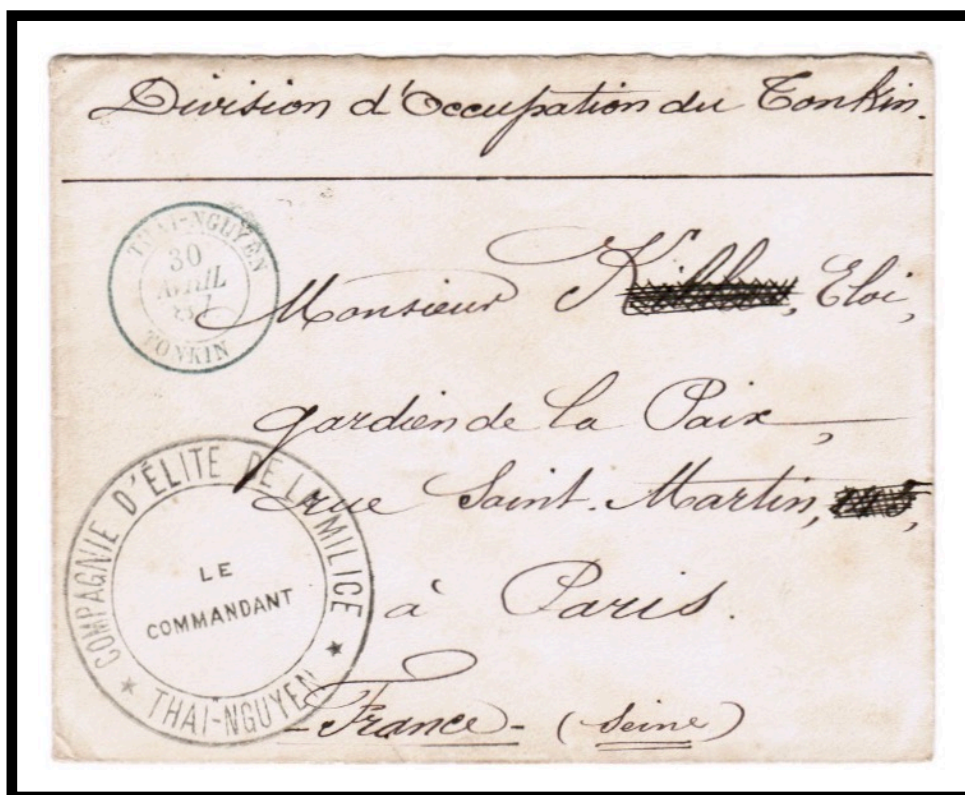 Division d'Occupation du Tonkin.
THAI-NGUYEN
30
AVRIL
TONKIN
Monsieur Eloi,
gardien de la Paix,
rue Saint-Martin,
à Paris.
- France - (Seine)
COMPAGNIE D'ÉLITE DE LA MILICE
LE
COMMANDANT
★ THAI-NGUYEN ★